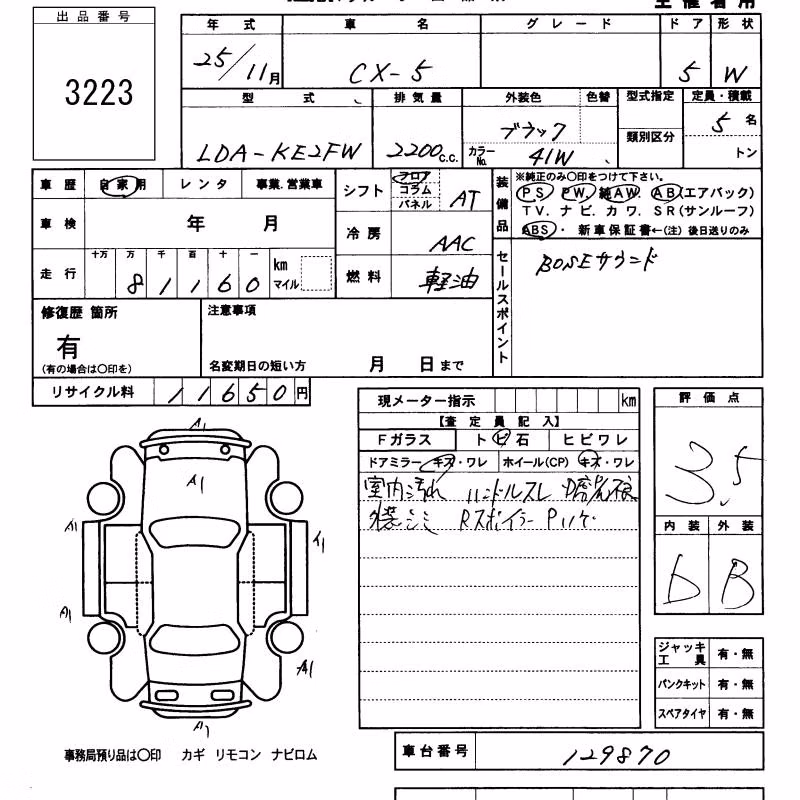 出品番号
3223
年式 車名 グレード ドア 形状
25/11月 CX-5 5 W
型式 排気量 外装色 色替 型式指定 定員・積載
LDA-KE2FW 2200c.c. ブラック 5名
カラーNo. 41W 類別区分 トン
車歴 自家用 レンタ 事業.営業車
シフト フロア コラム パネル AT
装備品 ※純正のみ○印をつけて下さい。
PS PW 純AW. AB(エアバック)
TV. ナビ. カワ. SR(サンルーフ)
ABS・ 新車保証書←(注) 後日送りのみ
車検 年 月
冷房 AAC
走行 十万 万 千 百 十 一 km マイル
81160
燃料 軽油
セールスポイント
BOSEサウンド
修復歴 箇所
有
(有の場合は○印を)
注意事項
名変期日の短い方 月 日まで
リサイクル料 11650円
現メーター指示 km
【査定員記入】
Fガラス トビ石 ヒビワレ
ドアミラー キズ・ワレ ホイール(CP) キズ・ワレ
室内汚れ ハンドルスレ
外装シミ Rスポイラー
評価点
3.5
内装 外装
D B
A1
A1
A1
A1
A1
A1
A1
ジャッキ工具 有・無
パンクキット 有・無
スペアタイヤ 有・無
事務局預り品は○印 カギ リモコン ナビロム
車台番号 129870